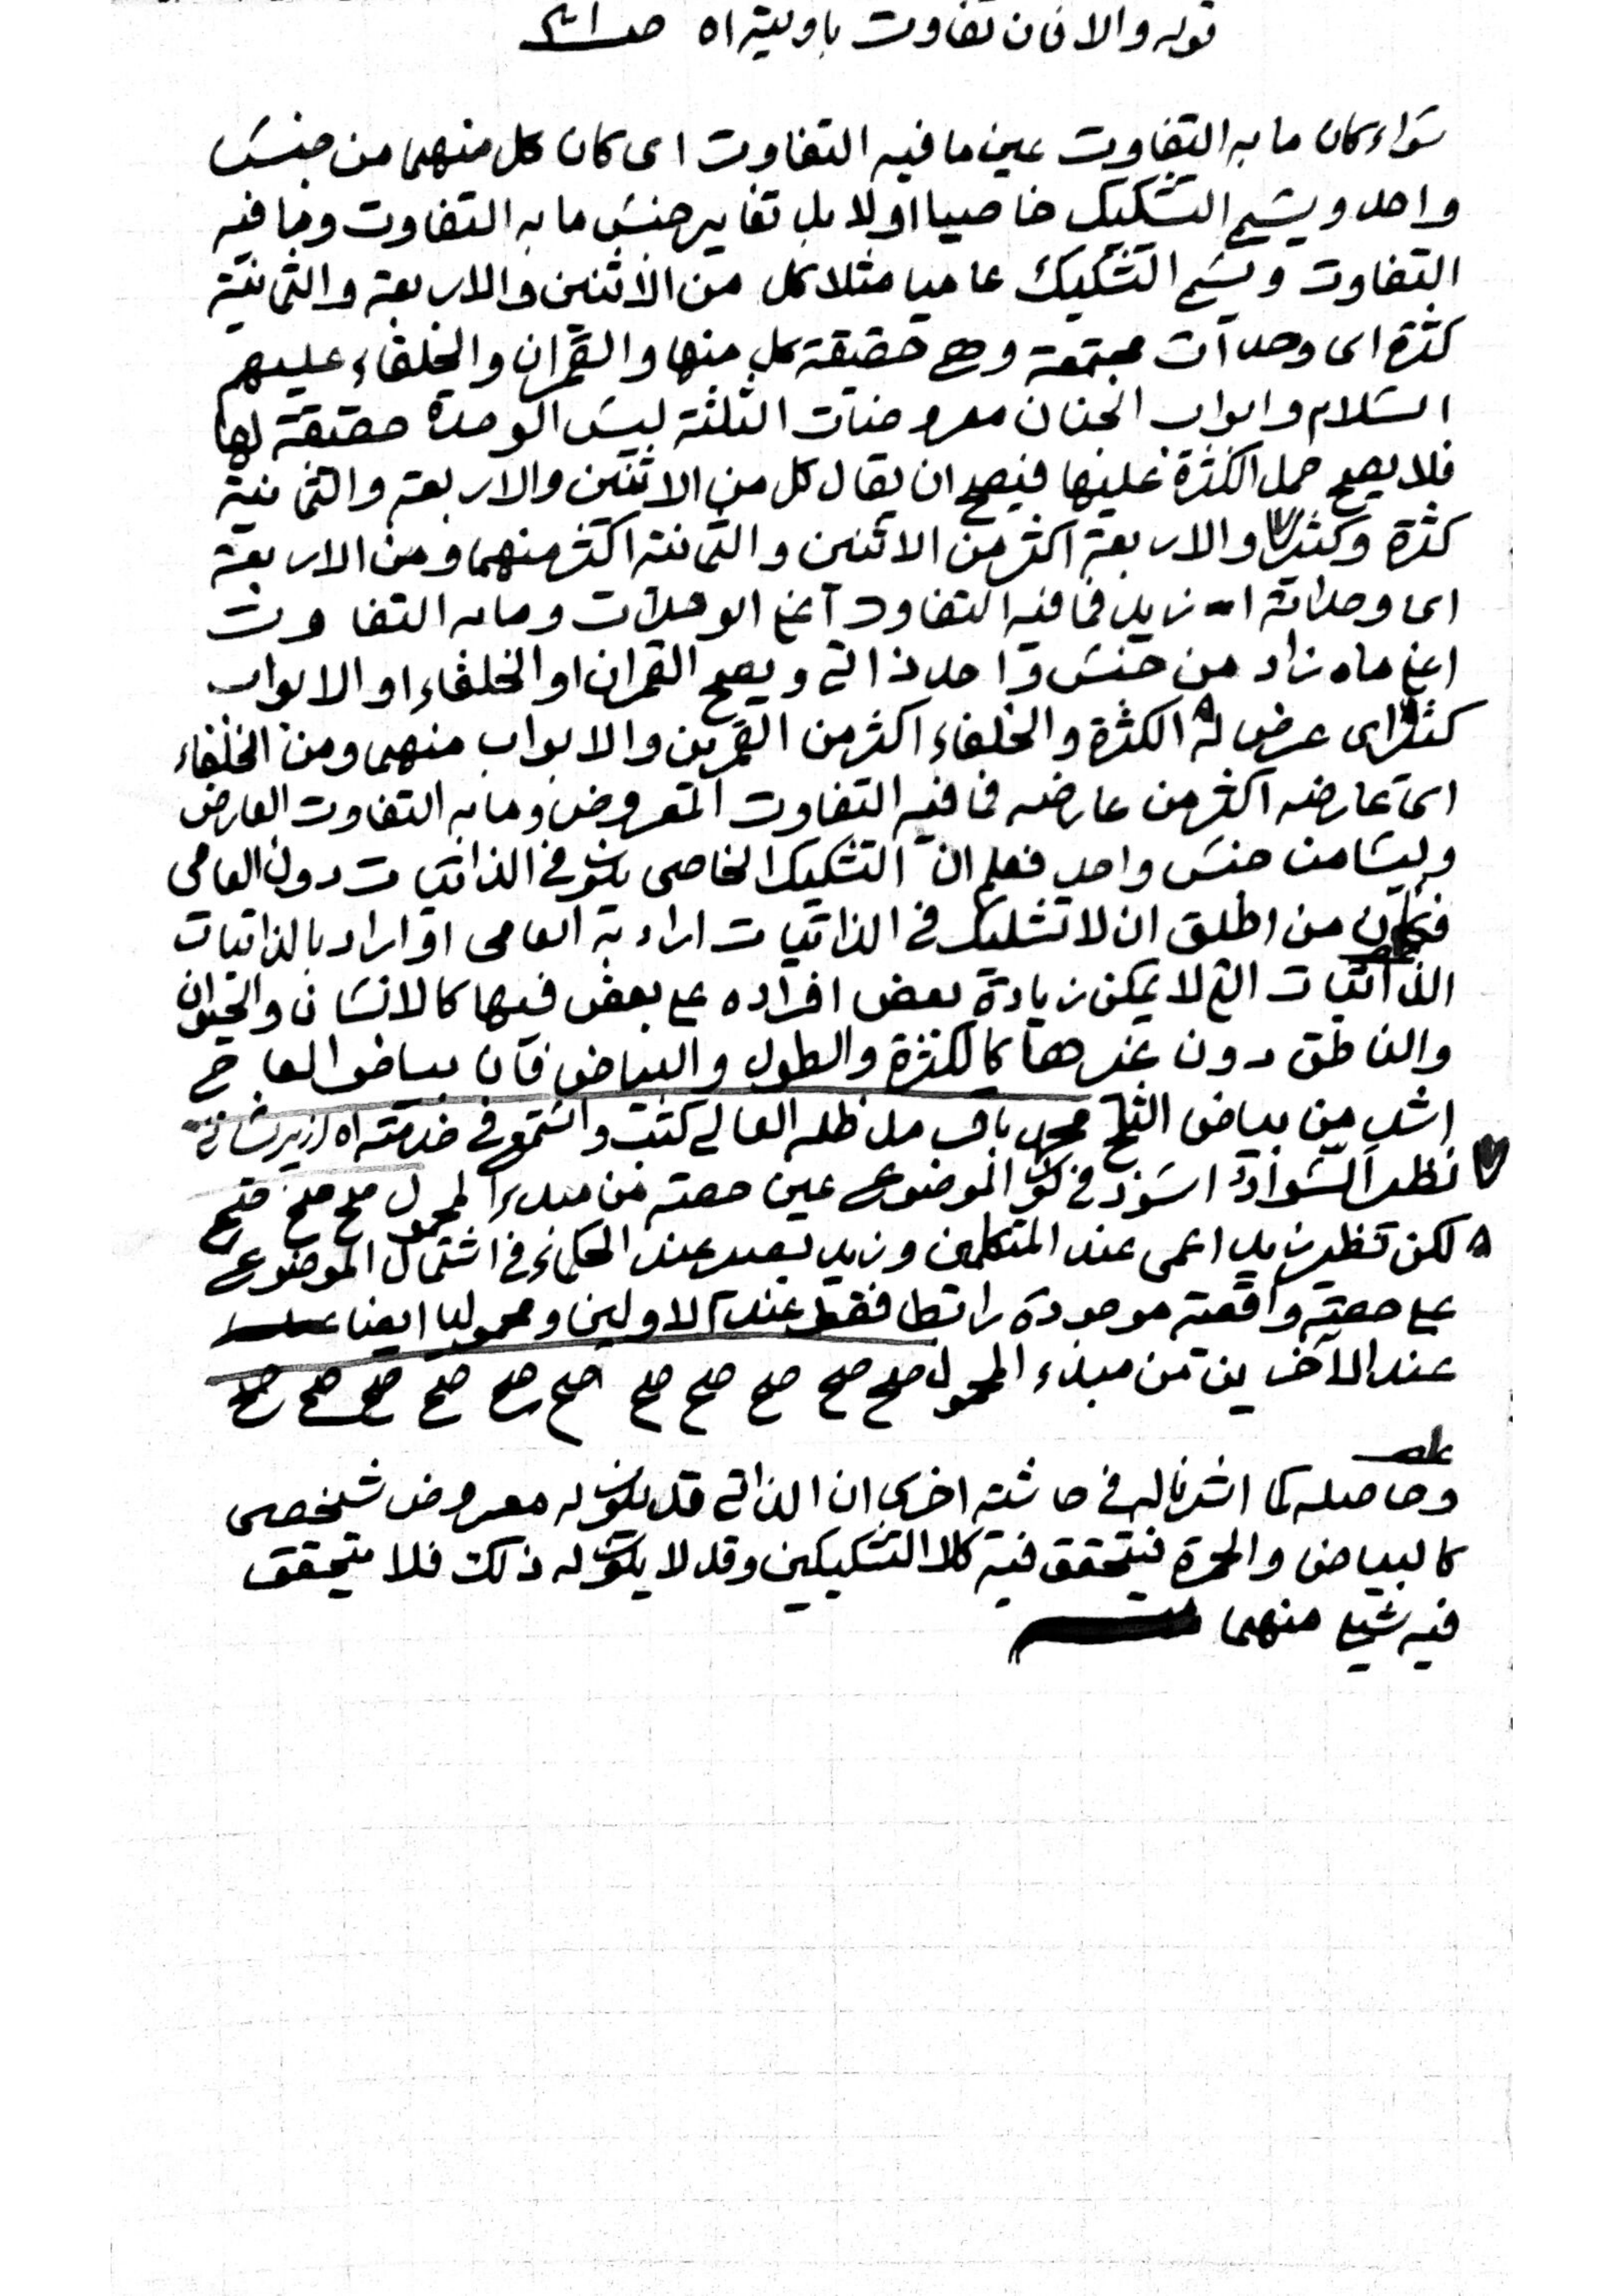 قوله والا فان تفاوت باولية اه صـ
سواء كان ما به التفاوت عين ما فيه التفاوت اى كان كل منهما من جنس
واحد ويسمى التشكيك خاصيا اولا بل تغاير جنس ما به التفاوت وما فيه
التفاوت ويسمى التشكيك عاميا مثلا كل من الاثنين والاربعة والثمانية
كثرة اى وحدات مجتمعة وهى حقيقة كل منها والقمران والخلفاء عليهم
السلام وابواب الجنان معروضات الثلثة ليس الوحدة حقيقة لها
فلا يصح حمل الكثرة عليها فيصح ان يقال كل من الاثنين والاربعة والثمانية
كثرة وكثير والاربعة اكثر من الاثنين والثمانية اكثر منهما ومن الاربعة
اى وحداته ازيد فما فيه التفاوت اعنى الوحدات وما به التفاوت
اعنى ما به زاد من جنس واحد ذاتى ويصح القمران او الخلفاء او الابواب
كثير اى عرض له الكثرة والخلفاء اكثر من القمرين والابواب منهما ومن الخلفاء
اى عارضه اكثر من عارضه فما فيه التفاوت المعروض وما به التفاوت العارض
وليسا من جنس واحد فعلم ان التشكيك الخاصى يكون فى الذاتيات دون العامى
من اطلق ان لا تشكيك فى الذاتيات اراد به العامى او اراد بالذاتيات
الذاتيات التى لا يمكن زيادة بعض افراده على بعض فيها كالانسان والحيوان
والناطق دون غيرها كالكثرة والطول والبياض فان بياض العاج
اشد من بياض الثلج محمد باقر مد ظله العالى كتبت واستمع فى خدمته اه
نظير السواد اسود فى كون الموضوع عين حصته من مبدء المحمول صح صح صح
لكن نظير زيد اعمى عند المتكلمين وزيد بصير عند الحكماء فى اشتمال الموضوع
على حصة واقعة موجودة رابطا فقط عند الاولين ومحموليا ايضا
عند الآخرين من مبدء المحمول صح صح صح صح صح صح صح صح صح صح صح
وحاصله كما اشرنا له فى حاشية اخرى ان الذاتى قد يكون له معروض شخصى
كالبياض والحمرة فيتحقق فيه كلا التشكيكين وقد لا يكون له ذلك فلا يتحقق
فيه شيئ منهما